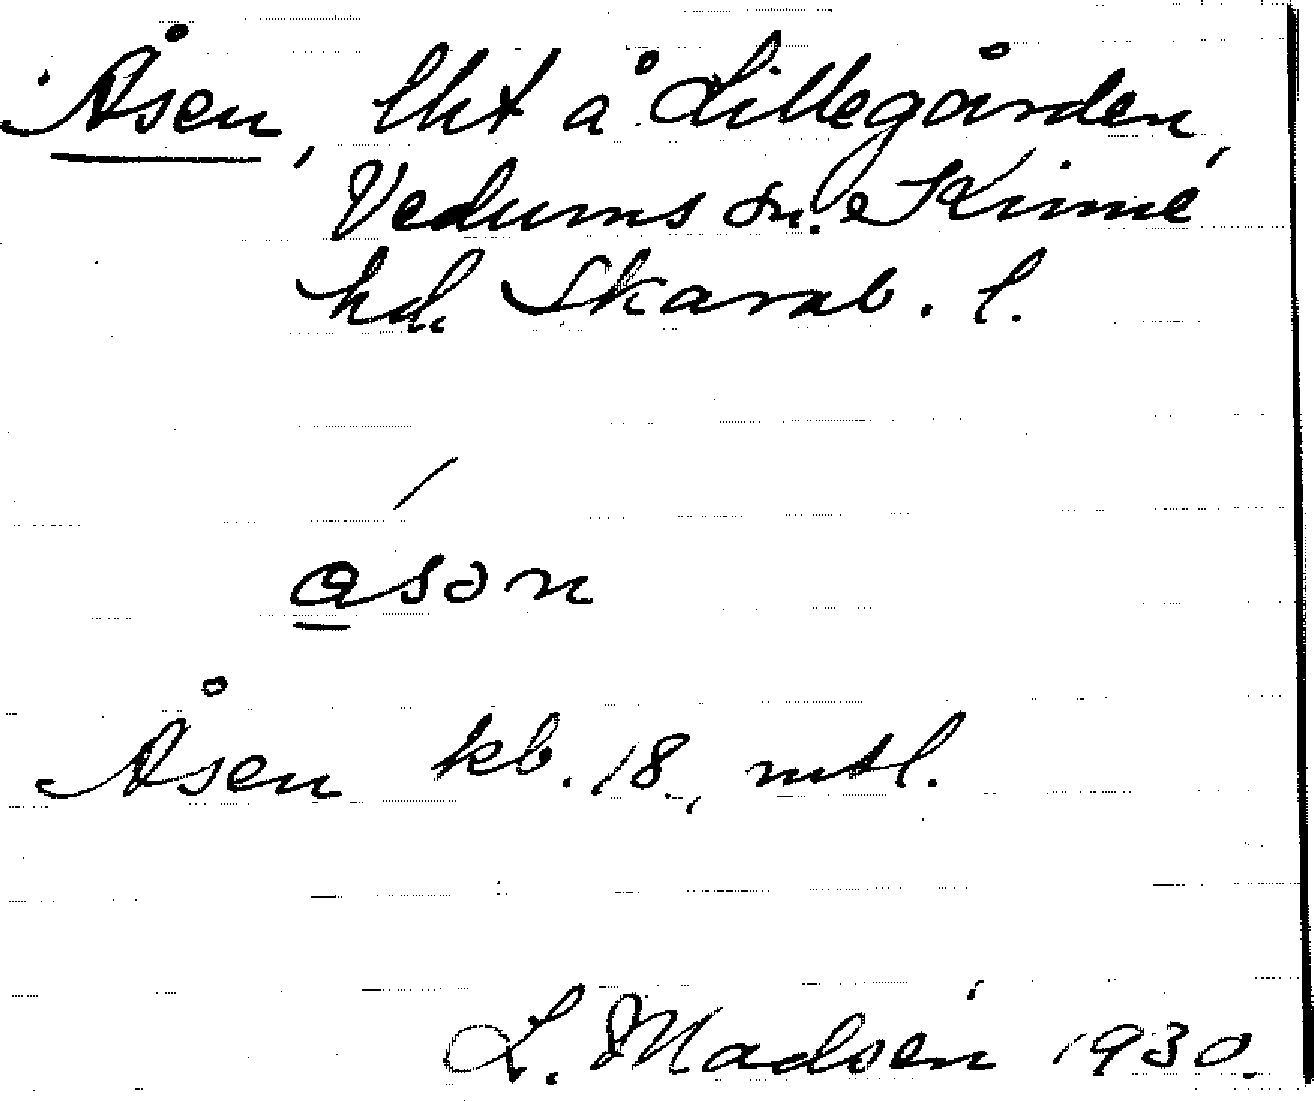 Åsen, lht å Lillegården,
Vedums sn. Kinne
hd. Skarab. l.
åsən
Åsen kb. 18, mtl.
L. Madsén 1930.